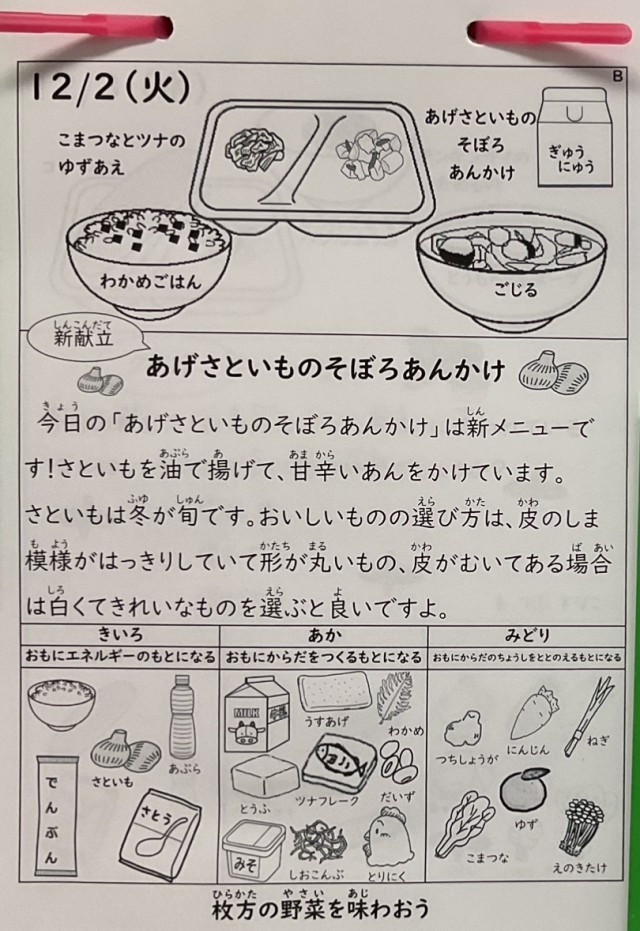 12/2(火)
B
こまつなとツナの
ゆずあえ
あげさといもの
そぼろ
あんかけ
ぎゅう
にゅう
わかめごはん
ごじる
しんこんだて
新献立
あげさといものそぼろあんかけ
きょう しん
今日の「あげさといものそぼろあんかけ」は新メニューで
あぶら あ あま から
す!さといもを油で揚げて、甘辛いあんをかけています。
ふゆ しゅん えら かた かわ
さといもは冬が旬です。おいしいものの選び方は、皮のしま
も よう かたち まる かわ ば あい
模様がはっきりしていて形が丸いもの、皮がむいてある場合
しろ えら よ
は白くてきれいなものを選ぶと良いですよ。
きいろ
おもにエネルギーのもとになる
さといも
あぶら
でんぷん
さとう
あか
おもにからだをつくるもとになる
MILK
牛乳
うすあげ
わかめ
とうふ
ツナフレーク
だいず
みそ
しおこんぶ
とりにく
みどり
おもにからだのちょうしをととのえるもとになる
つちしょうが
にんじん
ねぎ
ゆず
こまつな
えのきたけ
ひらかた やさい あじ
枚方の野菜を味わおう